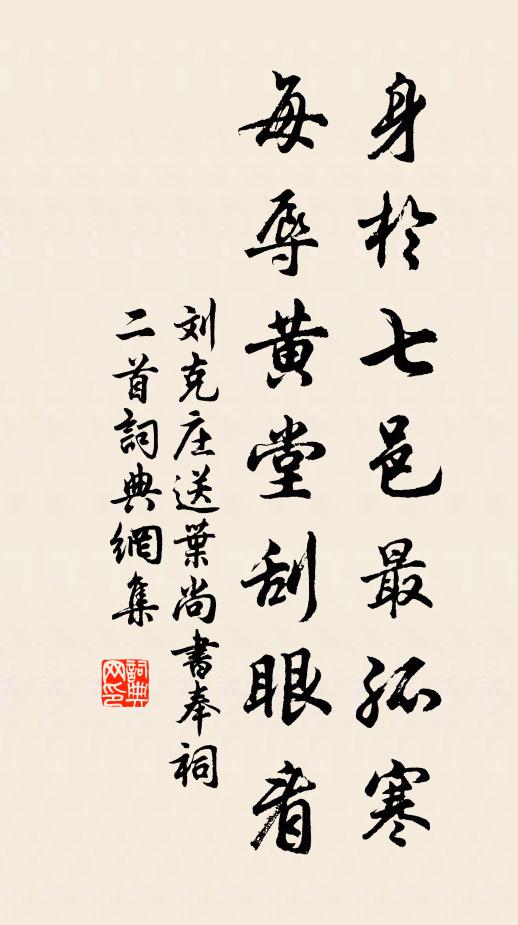 身於七邑最孤寒
每辱黄堂刮眼看
刘克庄送葉尚書奉祠
二首詞典網集
詞典
网印